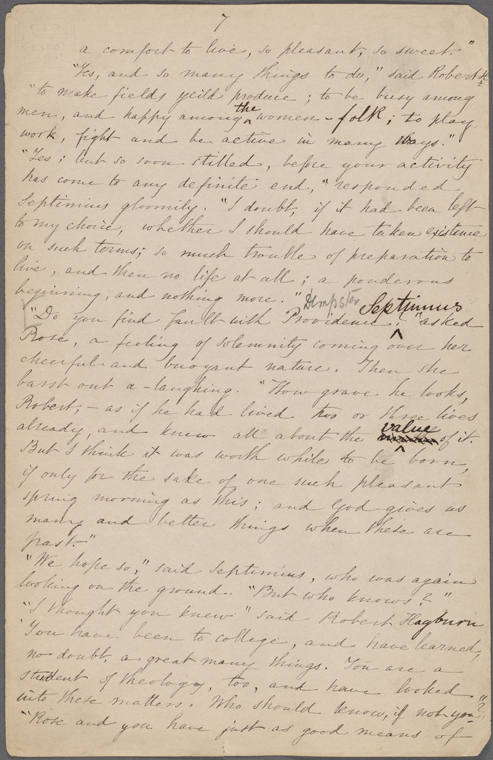 7
a comfort to live, so pleasant, so sweet."
"Yes, and so many things to do," said Robert;
"to make fields yeild produce; to be busy among
men, and happy among the women-folk; to play,
work, fight and be active in many ways."
"Yes; but so soon stilled, before your activity
has come to any definite end," responded
Septimius gloomily. "I doubt, if it had been left
to my choice, whether I should have taken existence
on such terms; so much trouble of preparation to
live, and then no life at all; a ponderous
beginning, and nothing more."
Dimpster
Septimius
["Do you find fault with Providence, ?" asked
Rose, a feeling of solemnity coming over her
cheerful and buoyant nature. Then she
burst out a-laughing. "How grave he looks,
Robert;- as if he had lived two or three lives
already, and knew all about the value of it.
But I think it was worth while to be born,
if only for the sake of one such pleasant
spring morning as this; and God gives us
many and better things when these are
past."
"We hope so," said Septimius, who was again
looking on the ground. "But who knows?"
"I thought you knew" said Robert Hagburn
"You have been to college, and have learned,
no doubt, a great many things. You are a
student of theology, too, and have looked
into these matters. Who should know, if not you?"
"Rose and you have just as good means of